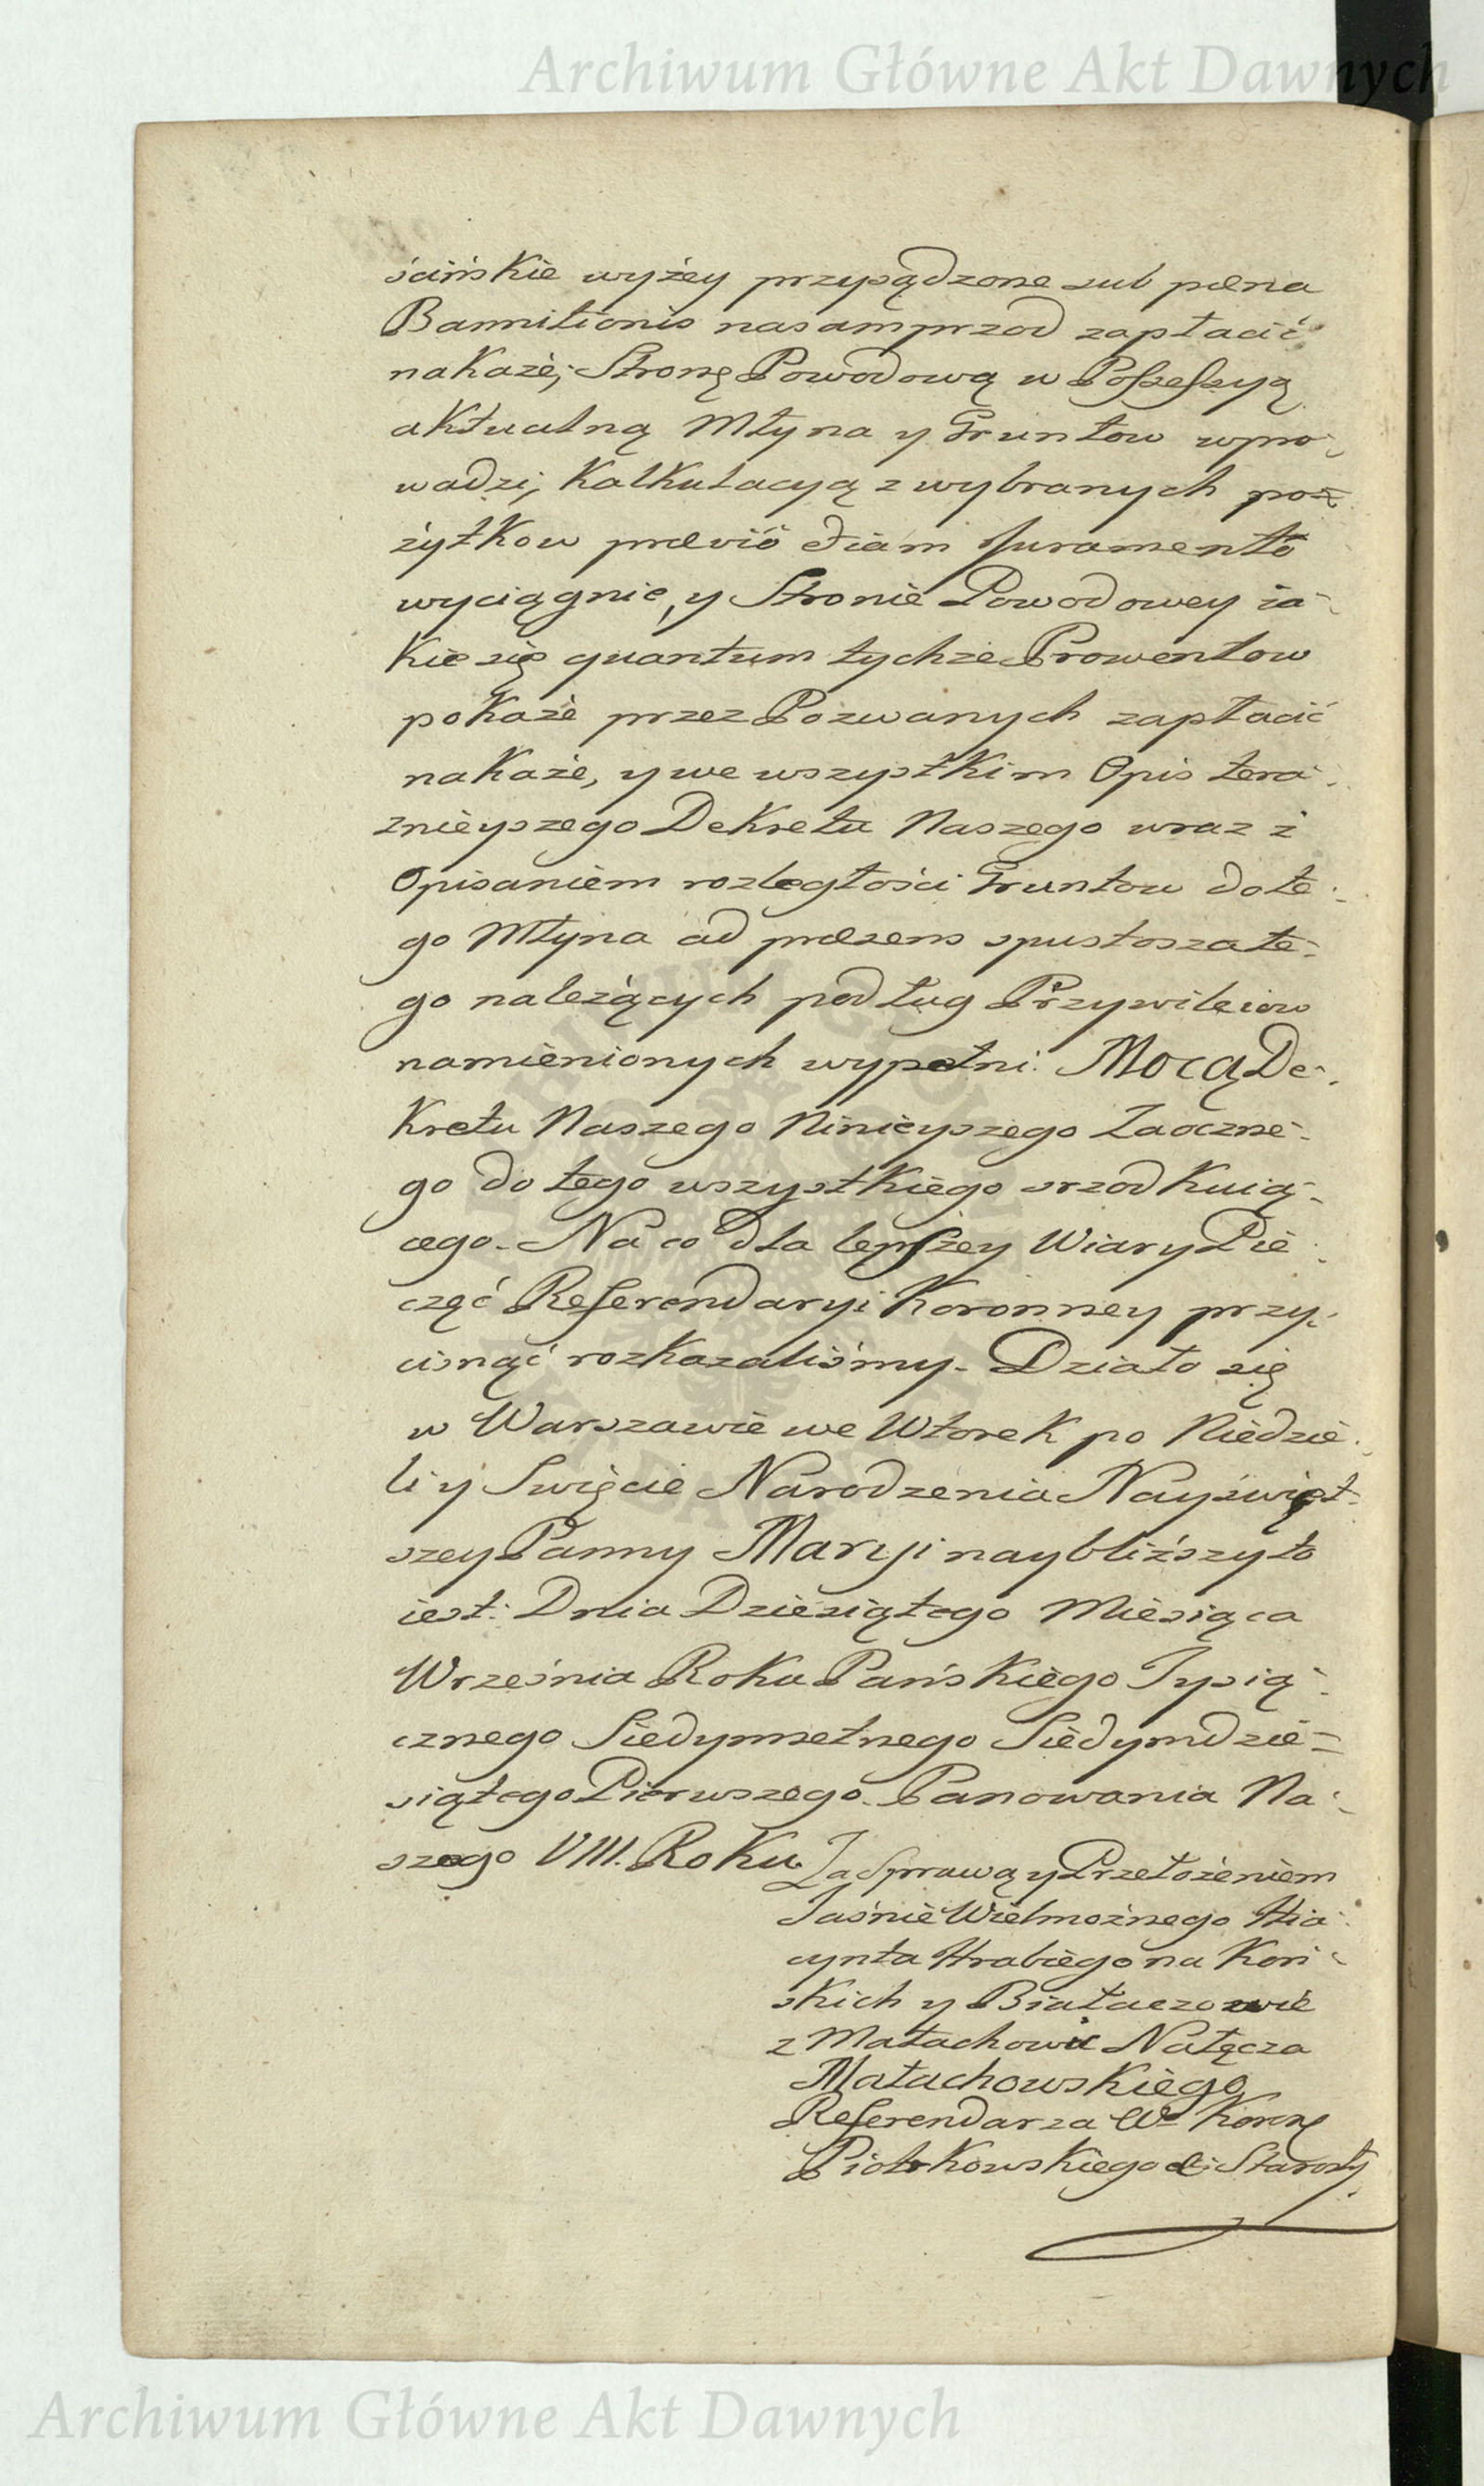 Archiwum Główne Akt Dawnych
ścińskie wyżey przysądzone sub pœna
Bannitionis nasamprzod zapłacić
nakaże, Stronę Powodową w Possessyą
aktualną Młyna y Gruntow wpro-
wadzi, Kalkulacyą z wybranych po-
żytkow prævio etiam Juramento
wyciągnie, y Stronie Powodowey ia-
kie się quantum tychże Prowentow
pokaże przez Pozwanych zapłacić
nakaże, y we wszystkim Opis tera-
znieyszego Dekretu Naszego wraz z
Opisaniem rozległości Gruntow do te-
go Młyna ad præsens spustoszałe-
go należących podług Przywileiow
namienionych wypełni. Mocą De-
kretu Naszego Ninieyszego Zaoczne-
go do tego wszystkiego srzodkuią-
cego. Na co dla lepszey Wiary Pie-
częć Referendaryi Koronney przy-
cisnąć rozkazaliśmy. Działo się
w Warszawie we Wtorek po Niedzie-
li y Swięcie Narodzenia Nayświęt-
szey Panny Maryi naybliższy to
iest: Dnia Dziesiątego Miesiąca
Września Roku Pańskiego Tysią-
cznego Siedymsetnego Siedymdzie-
siątego Pierwszego. Panowania Na-
szego VIII. Roku
Za Sprawą y Przełożeniem
Jaśnie Wielmożnego Hia-
cynta Hrabiego na Koń-
skich y Białaczowie
z Małachowic Nałęcza
Małachowskiego
Referendarza Wo Koronę
Piotrkowskiego &: Starosty
Archiwum Główne Akt Dawnych